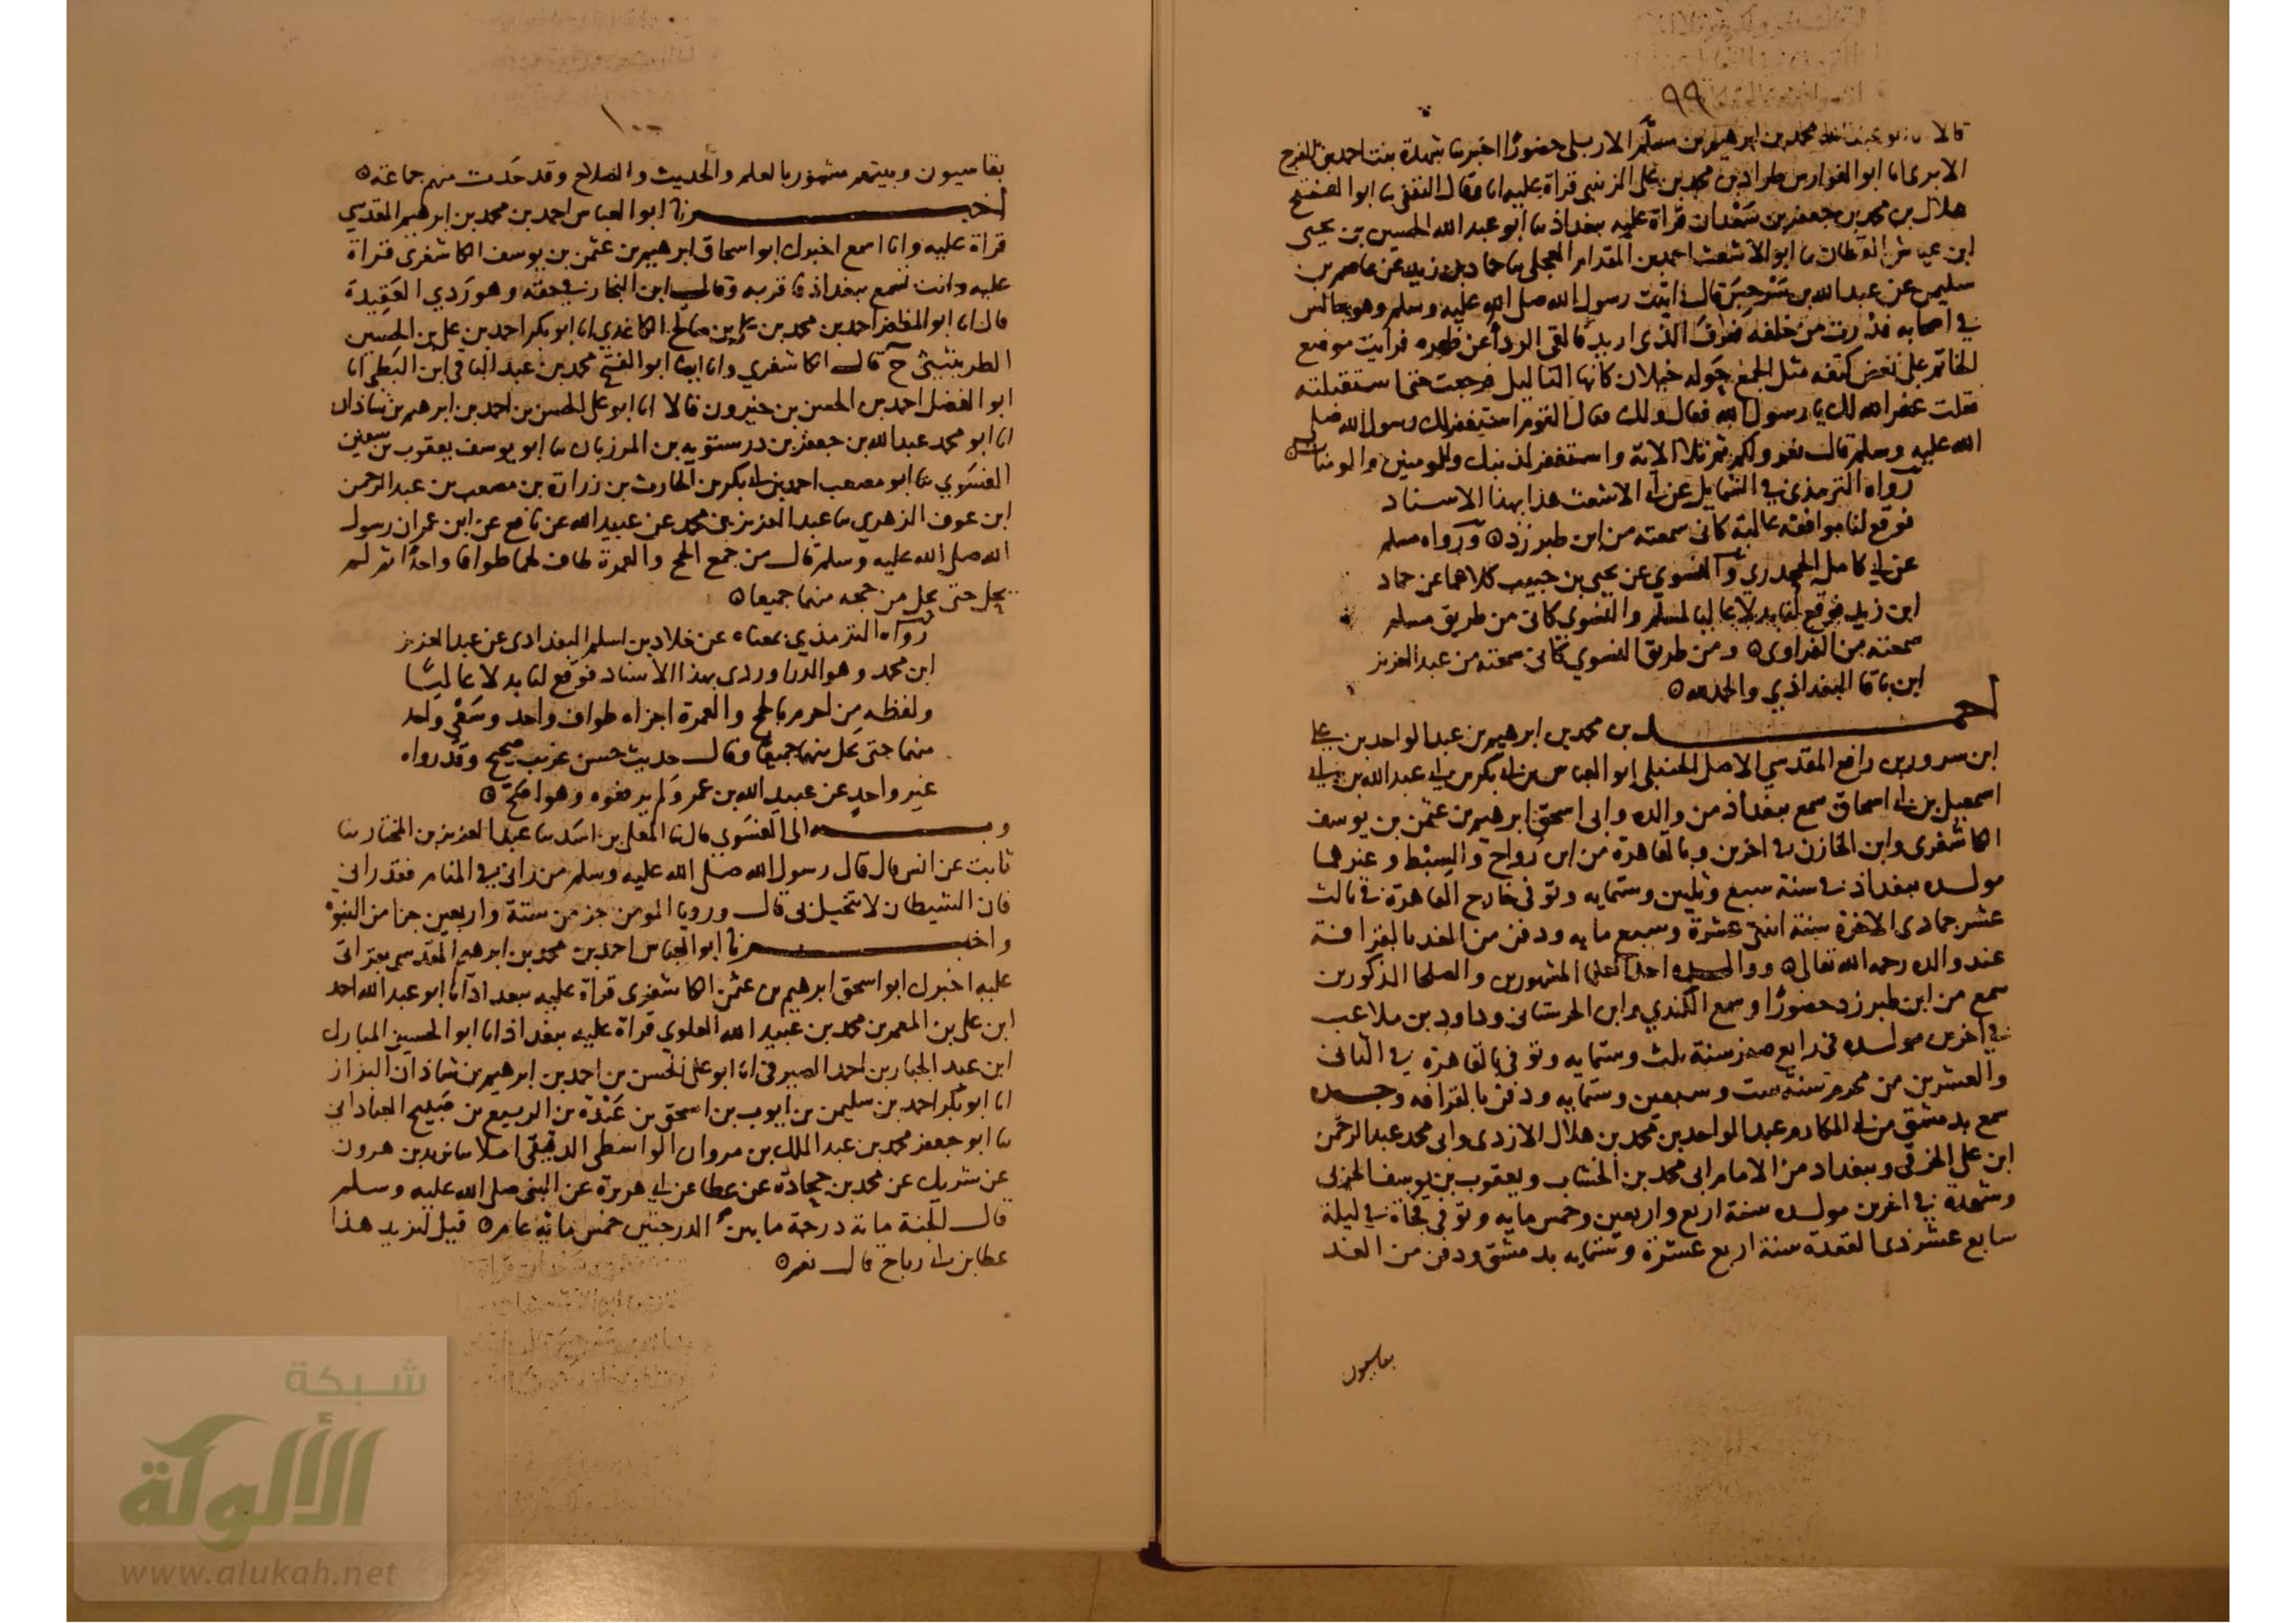 ٩٩
قالا انا ابو عبد الله محمد بن ابرهيم بن مسلم الاربلي حضورًا اخبرتنا شهدة بنت احمد بن الفرج
الابري انا ابو الفوارس طراد بن محمد بن علي الزينبي قراة عليه انا وقال الثقفي ثنا ابو الفتح
هلال بن محمد بن جعفر بن سَعْدان قراة عليه ببغداذ ثنا ابو عبد الله الحسين بن يحيى
ابن عياش القطان ثنا ابو الاشعث احمد بن المقدام العجلي ثنا حماد بن زيد عن عاصم بن
سليمن عن عبد الله بن سَرْجِسَ قال اتيت رسول الله صلى الله عليه وسلم وهو جالس
في اصحابه فدرت من خلفه فعرف الذي اريد فالقى الردأ عن ظهره فرايت موضع
الخاتم على نغض كتفه مثل الجمع حوله خيلان كانها الثاليل فرجعت حتى استقبلته
فقلت غفر الله لك يا رسول الله فقال ولك فقال القوم استغفر لك رسول الله صلى
الله عليه وسلم قال نعم ولكم ثم تلا الاية واستغفر لذنبك وللمومنين والمومنات
رواه الترمذي في الشمايل عن ابي الاشعث هذا بهذا الاسناد
فوقع لنا موافقة عالية كاني سمعته من ابن طبرزد ه ورواه مسلم
عن ابي كامل الجحدري والنسوي عن يحيى بن حبيب كلاهما عن حماد
ابن زيد فوقع لنا بدلا عاليا لمسلم والنسوي كاني من طريق مسلم
سمعته من الفراوي ه ومن طريق النسوي كاني سمعته من عبد العزيز
ابن باقا البغداذي والحمد لله ه
احمد بن محمد بن ابرهيم بن عبد الواحد بن علي
ابن سرور بن رافع المقدسي الاصل الحنبلي ابو العباس بن ابي بكر بن ابي عبد الله بن ابي
اسمعيل بن ابي اسحاق سمع ببغداذ من والده وابي اسحق ابرهيم بن عثمن بن يوسف
الكاشغري وابن الخازن في اخرين وبالقاهرة من ابن رواح والسِبْط وغيرهما
مولده ببغداذ في سنة سبع وثلثين وستمايه وتوفي خارج القاهرة في ثالث
عشر جمادى الاخرة سنة اثنتي عشرة وسبع مايه ودفن من الغد بالقرافة
عند والده رحمه الله تعالى ه ووالده احد العلما المشهورين والصلحا المذكورين
سمع من ابن طبرزد حضورًا وسمع الكندي وابن الحرستاني وداود بن ملاعب
في اخرين مولده في رابع صفر سنة ثلث وستمايه وتوفي بالقاهرة في الثاني
والعشرين من محرم سنة ست وسبعين وستمايه ودفن بالقرافه وجده
سمع بدمشق من ابي المكارم عبد الواحد بن محمد بن هلال الازدي وابي محمد عبد الرحمن
ابن علي الخرقي وببغداد من الامام ابي محمد بن الخشاب ويعقوب بن يوسف الحربي
وشهدة في اخرين مولده سنة اربع واربعين وخمس مايه وتوفي فجاة في ليلة
سابع عشر ذي القعدة سنة اربع عشرة وستمايه بدمشق ودفن من الغد
بقاسيون
١٠٠
بقاسيون وبيتهم مشهور بالعلم والحديث والصلاح وقد حَدث منهم جماعة ه
اخبرنا ابو العباس احمد بن محمد بن ابرهيم المقدسي
قراة عليه وانا اسمع اخبرك ابو اسحاق ابرهيم بن عثمن بن يوسف الكاشغري قراة
عليه وانت تسمع ببغداذ فاقر به وقال ابن النجار في حقه وهو رَدي العَقِيدة
قال انا ابو المظفر احمد بن محمد بن علي بن صالح الكاغدي انا ابو بكر احمد بن علي بن الحسين
الطريثيثي ح قال الكاشغري وانا ايضا ابو الفتح محمد بن عبد الباقي ابن البَطي انا
ابو الفضل احمد بن الحسن بن خيرون قالا انا ابو علي الحسن بن احمد بن ابرهيم بن شاذان
انا ابو محمد عبد الله بن جعفر بن درستويه بن المرزبان ثنا ابو يوسف يعقوب بن سفين
الفسَوي ثنا ابو مصعب احمد بن ابي بكر بن الحارث بن زرارة بن مصعب بن عبد الرحمن
ابن عوف الزهري ثنا عبد العزيز بن محمد عن عبيد الله عن نافع عن ابن عمر ان رسول
الله صلى الله عليه وسلم قال من جمع الحج والعمرة طاف لهما طوافا واحدًا ثم لم
يحل حتى يحل من حجه منهما جميعا ه
رواه الترمذي بمعناه عن خلاد بن اسلم البغدادي عن عبد العزيز
ابن محمد وهو الدراوردي بهذا الاسناد فوقع لنا بدلا عاليًا
ولفظه مِن احرم بالحج والعمرة اجزاه طواف واحد وسَعْي واحد
منهما حتى يحل منهما جميعًا وقال حديث حسن غريب صحيح وقد رواه
غير واحدٍ عن عبيد الله بن عمر وَلم يرفعوه وهو اصَحّ ه
وبه الى الفسَوي قال ثنا المعلى بن اسَد ثنا عبد العزيز بن المختار ثنا
ثابت عن انس قال قال رسول الله صلى الله عليه وسلم من راني في المنام فقد راني
فان الشيطان لا يتخيل بي قال ورويا المومن جز من ستة واربعين جزا من النبوة
واخبرنا ابو العباس احمد بن محمد بن ابرهيم المقدسي بقراتي
عليه اخبرك ابو اسحق ابرهيم بن عثمن الكاشغري قراة عليه ببغداد انا ابو عبد الله احمد
ابن علي بن المعمر بن محمد بن عبيد الله العلوي قراة عليه ببغداذ انا ابو الحسين المبارك
ابن عبد الجبار بن احمد الصيرفي انا ابو علي الحسن بن احمد بن ابرهيم بن شاذان البزاز
انا ابو بكر احمد بن سليمن بن ايوب بن اسحق بن عَبْدَة بن الربيع بن صَبيح العباداني
ثنا ابو جعفر محمد بن عبد الملك بن مروان الواسطي الدقيقي املا ثنا يزيد بن هرون
عن شريك عن محمد بن جحادة عن عطا عن ابي هريرة عن النبي صلى الله عليه وسلم
قال الجنة ماية درجة ما بين الدرجتين خمس ماية عام ه قيل ليزيد هذا
عطا بن ابي رباح قال نعم ه
شبكة
الألوكة
www.alukah.net